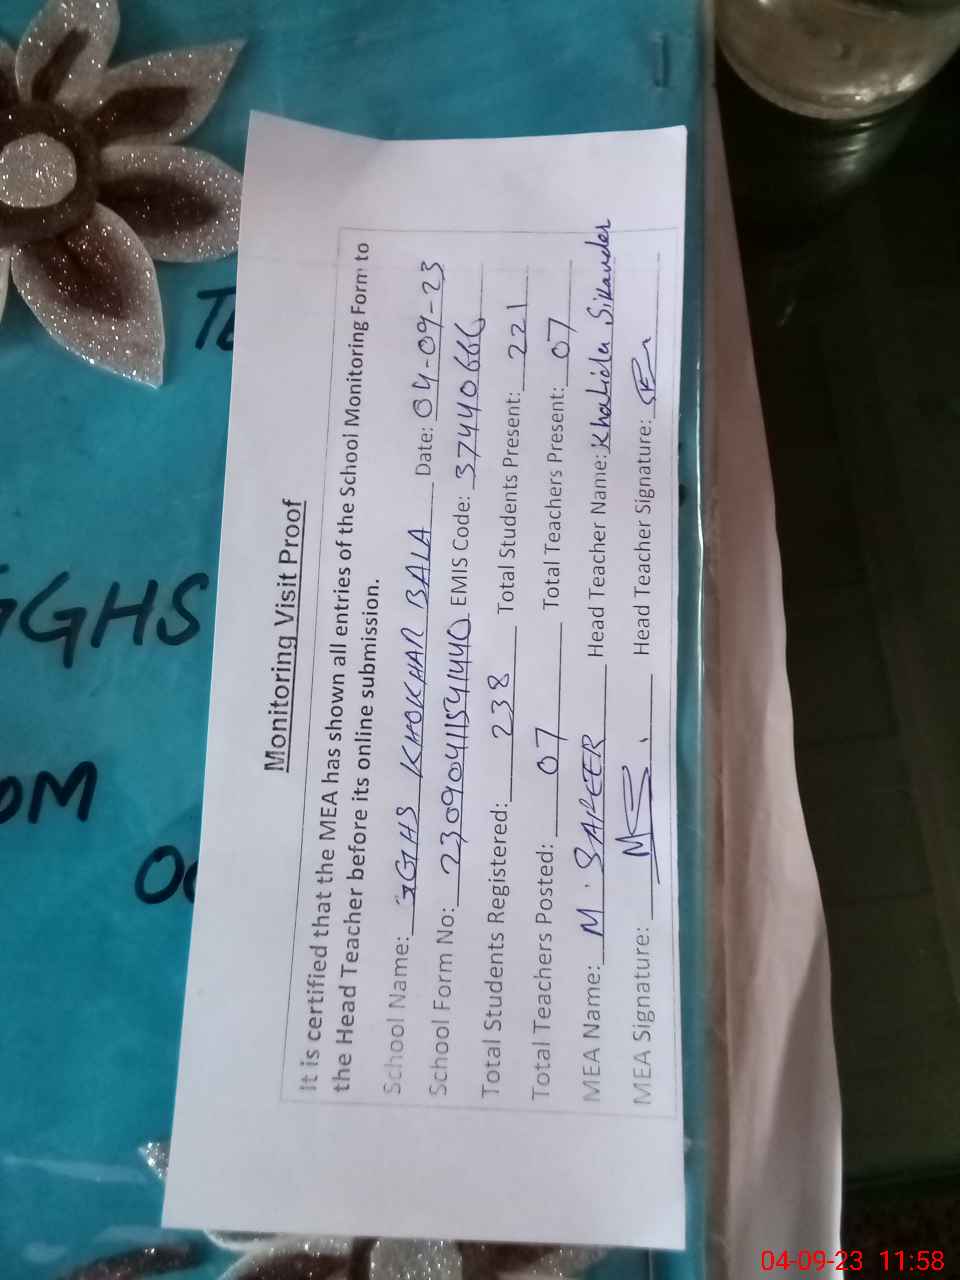 Monitoring Visit Proof
It is certified that the MEA has shown all entries of the School Monitoring Form to
the Head Teacher before its online submission.
School Name: GGHS KHOKHAR BALA Date: 04-09-23
School Form No: 2309041151441440 EMIS Code: 37440666
Total Students Registered: 238 Total Students Present: 221
Total Teachers Posted: 07 Total Teachers Present: 07
MEA Name: M. SAFEER Head Teacher Name: Khalida Sikander
MEA Signature: Head Teacher Signature:
GGHS
OM
04-09-23 11:58